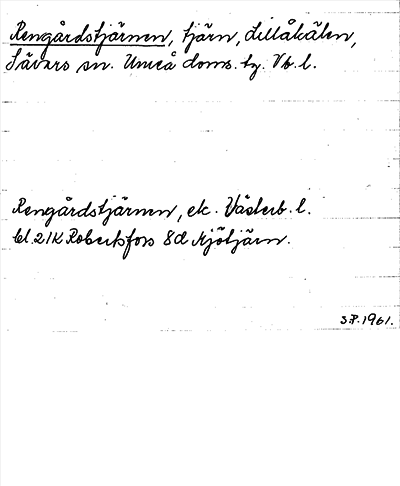 Rengårdstjärnen, tjärn, Lillåkälen,
Sävars sn. Umeå doms. tg. Vb. l.
Rengårdstjärnen, ek. Västerb. l.
bl. 21K Robertsfors 8d Mjötjärn.
S.P. 1961.